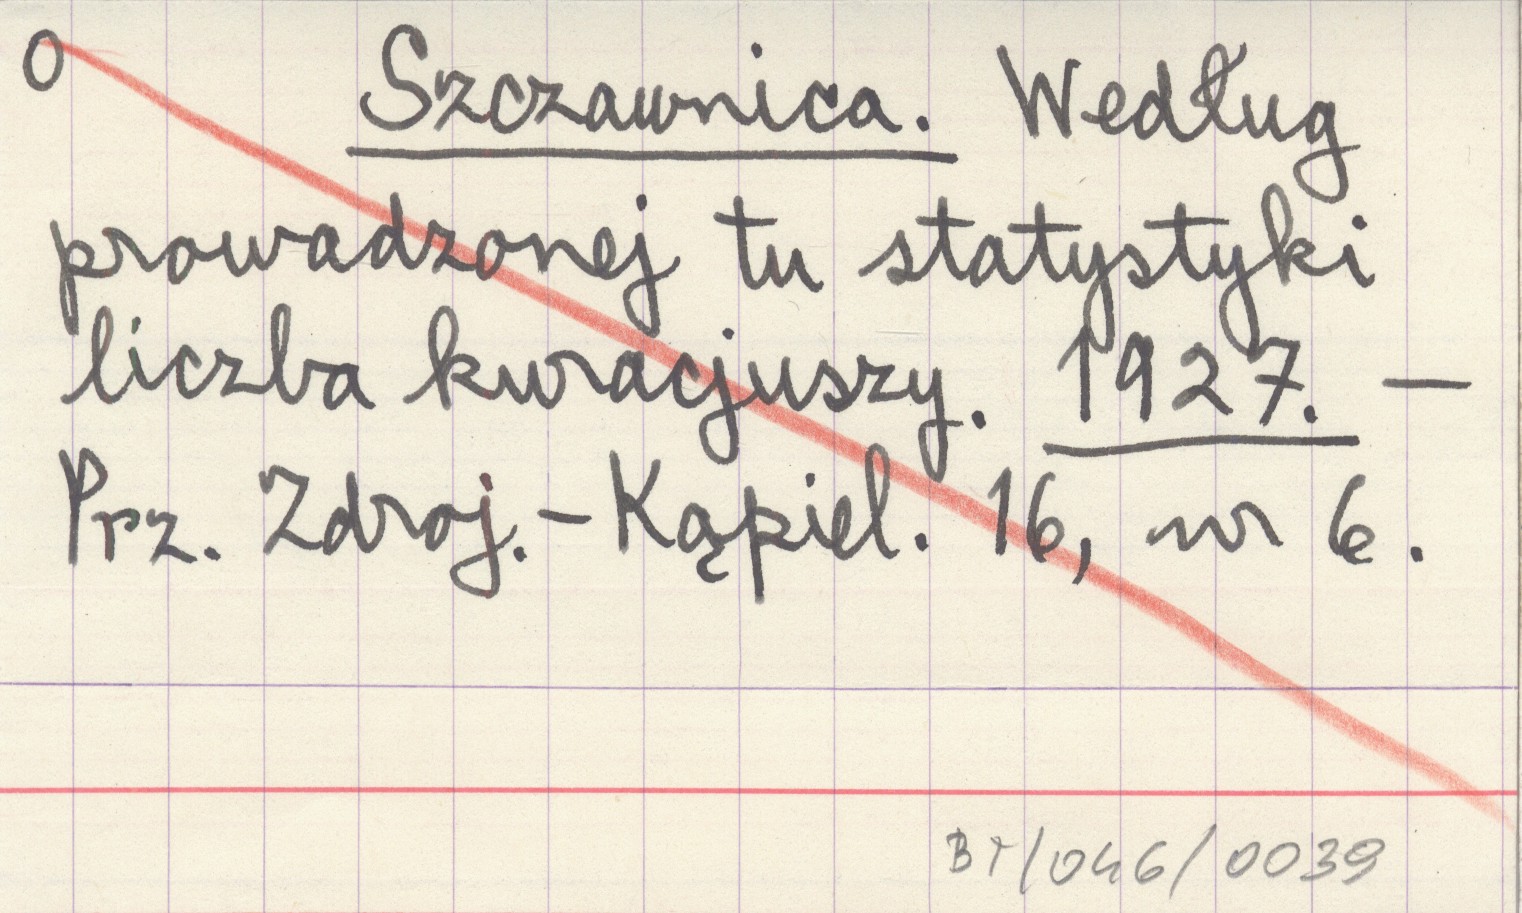 O Szczawnica. Według
prowadzonej tu statystyki
liczba kuracjuszy. 1927. —
Prz. Zdroj.-Kąpiel. 16, nr 6.
BT/046/0039